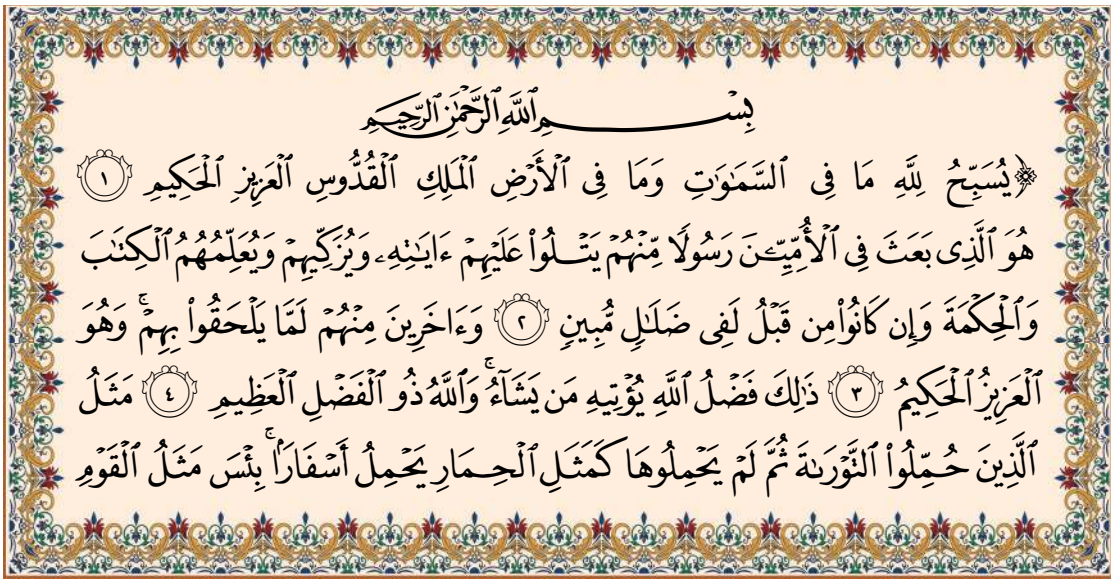 بِسْمِ ٱللَّهِ ٱلرَّحْمَٰنِ ٱلرَّحِيمِ
۞يُسَبِّحُ لِلَّهِ مَا فِى ٱلسَّمَٰوَٰتِ وَمَا فِى ٱلْأَرْضِ ٱلْمَلِكِ ٱلْقُدُّوسِ ٱلْعَزِيزِ ٱلْحَكِيمِ ١
هُوَ ٱلَّذِى بَعَثَ فِى ٱلْأُمِّيِّـۧنَ رَسُولًا مِّنْهُمْ يَتْلُوا۟ عَلَيْهِمْ ءَايَٰتِهِۦ وَيُزَكِّيهِمْ وَيُعَلِّمُهُمُ ٱلْكِتَٰبَ
وَٱلْحِكْمَةَ وَإِن كَانُوا۟ مِن قَبْلُ لَفِى ضَلَٰلٍ مُّبِينٍ ٢ وَءَاخَرِينَ مِنْهُمْ لَمَّا يَلْحَقُوا۟ بِهِمْ ۚ وَهُوَ
ٱلْعَزِيزُ ٱلْحَكِيمُ ٣ ذَٰلِكَ فَضْلُ ٱللَّهِ يُؤْتِيهِ مَن يَشَآءُ ۚ وَٱللَّهُ ذُو ٱلْفَضْلِ ٱلْعَظِيمِ ٤ مَثَلُ
ٱلَّذِينَ حُمِّلُوا۟ ٱلتَّوْرَىٰةَ ثُمَّ لَمْ يَحْمِلُوهَا كَمَثَلِ ٱلْحِمَارِ يَحْمِلُ أَسْفَارًۢا ۚ بِئْسَ مَثَلُ ٱلْقَوْمِ